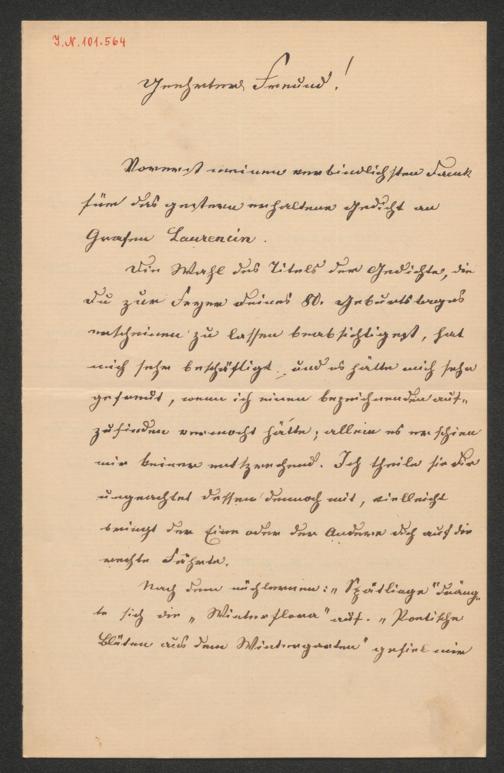 I.N. 101.564
Geehrter Freund!
Vorerst meinen verbindlichsten Dank
für das gestern erhaltene Gedicht an
Grafen Laurencin.
Die Wahl des Titels der Gedichte, die
Du zur Feyer Deines 80. Geburtstages
erscheinen zu lassen beabsichtigest, hat
mich sehr beschäftigt, und es hätte mich sehr
gefreut, wenn ich einen bezeichnenden auf-
zufinden vermocht hätte; allein es erschien
mir keiner entsprechend. Ich theile sie Dir
ungeachtet dessen dennoch mit, vielleicht
bringt der Eine oder der Andere doch auf die
rechte Fährte.
Nach dem nüchternen: "Spätlinge" dräng-
te sich die "Winterflora" auf. "Poetische
Blüten aus dem Wintergarten" gefiel mir